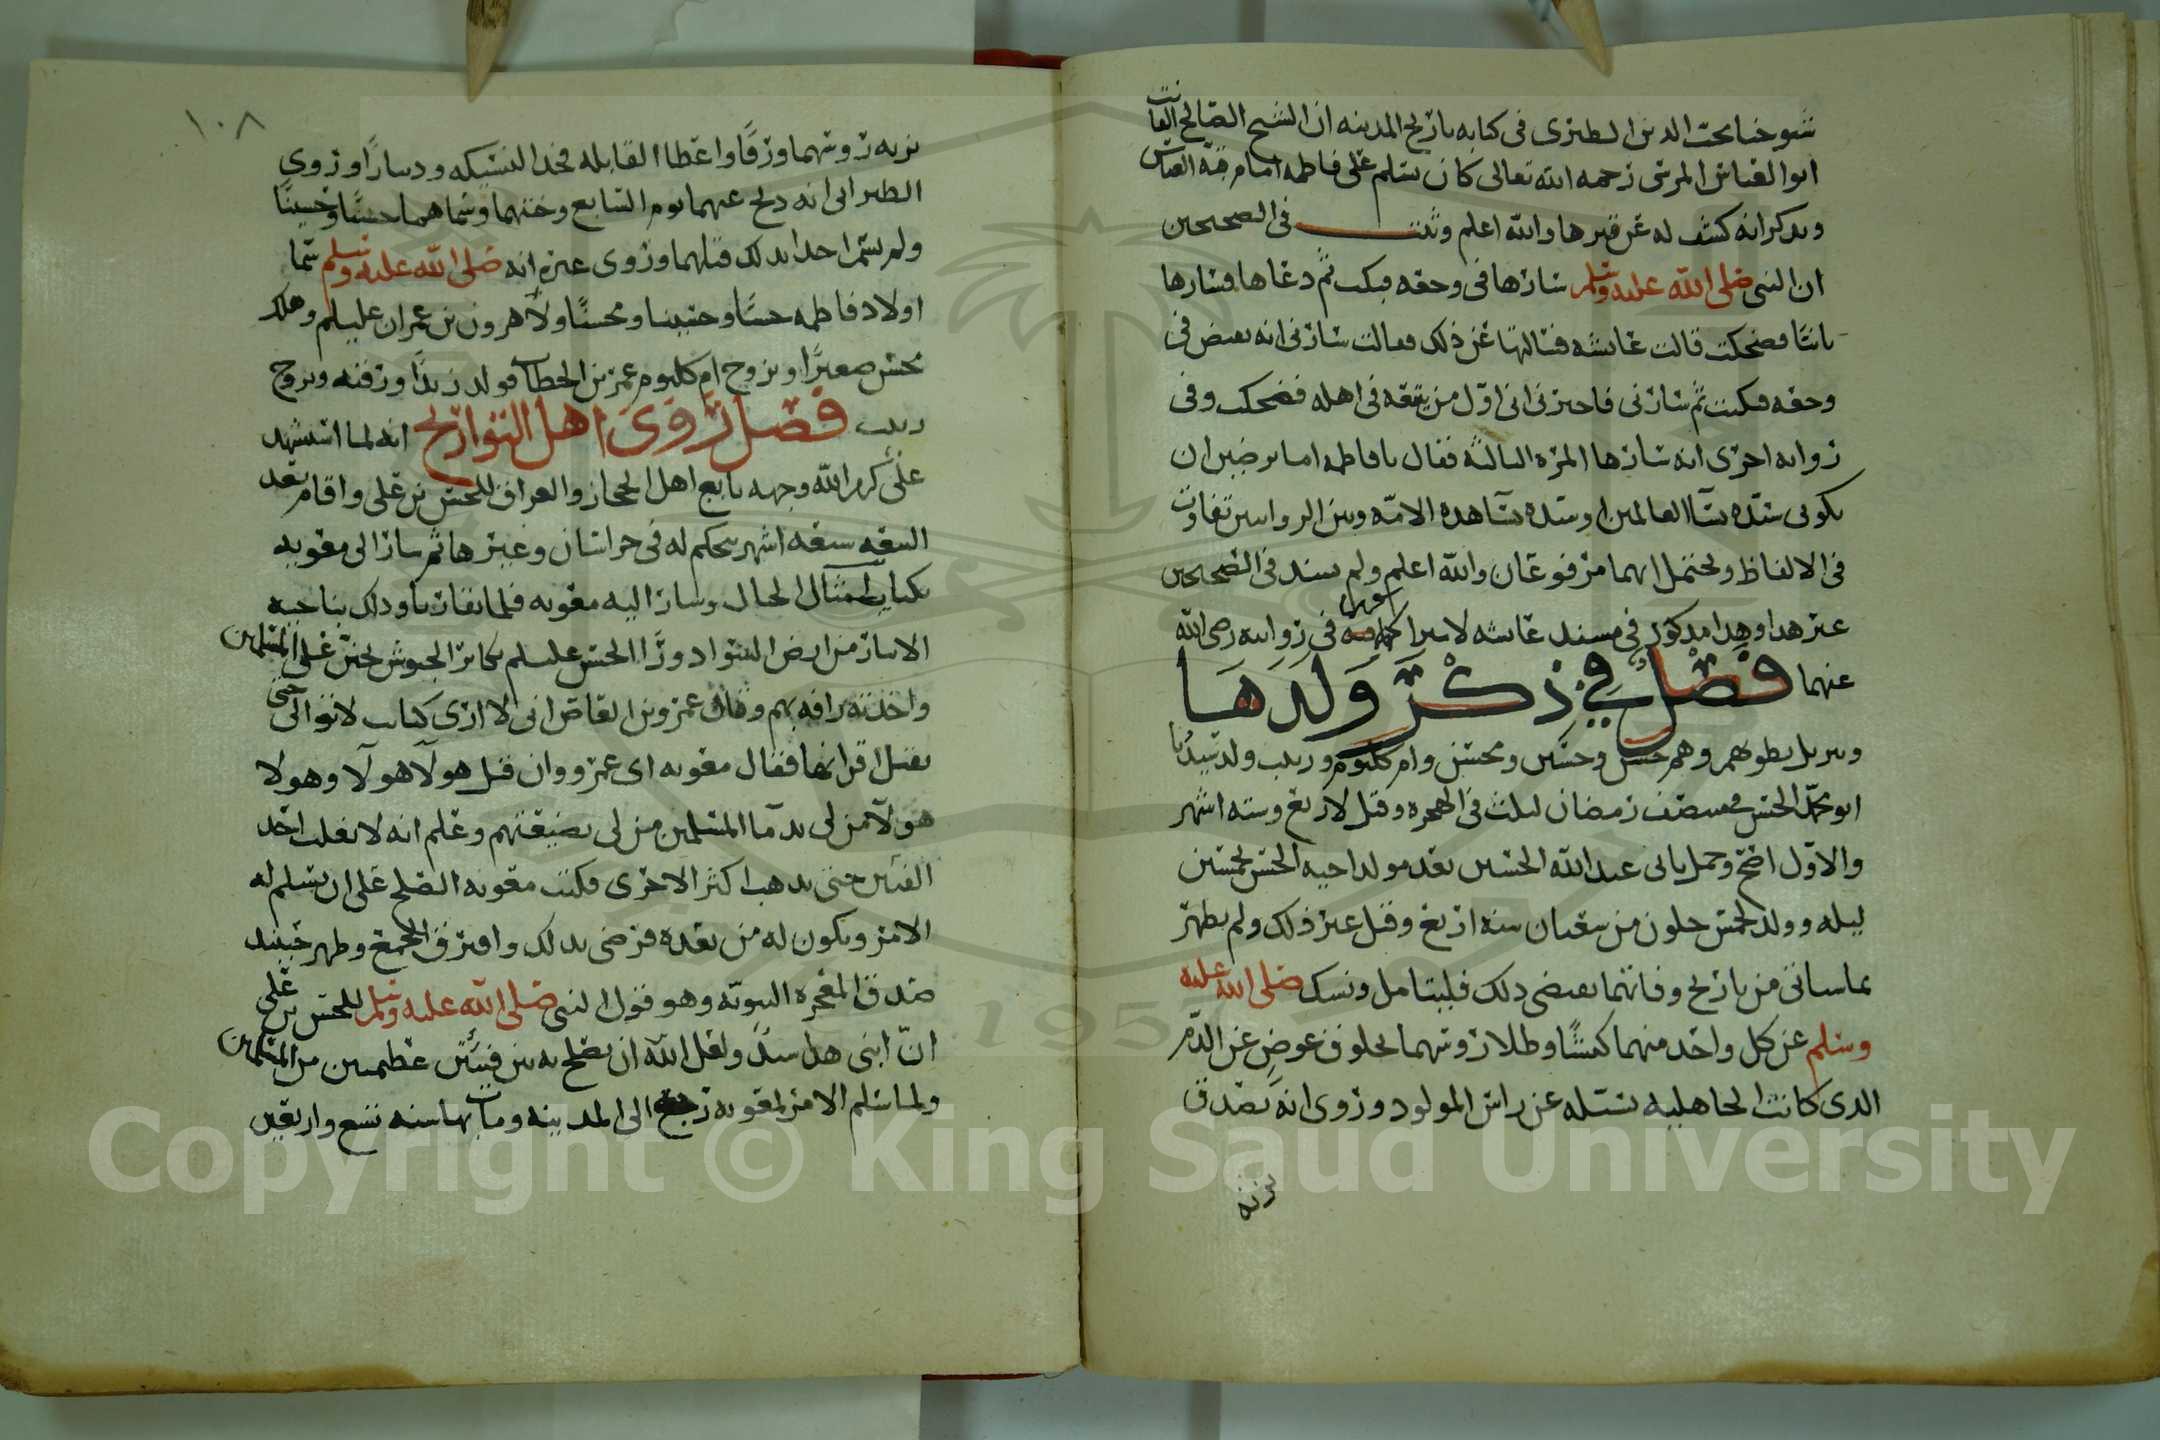 شيوخنا محب الدين الطبري في كتابه تاريخ المدينه ان الشيخ الصالح
ابو العباس المرسي رحمه الله تعالى كان يسلم على فاطمه امام قبة العباس
ويذكر انه كشف له عن قبرها والله اعلم وثبت في الصحيحين
ان النبي صلى الله عليه وسلم سارها في وجعه فبكت ثم دعاها فسارها
ثانيا فضحكت قالت عايشه فسالتها عن ذلك فقالت سارني انه يقبض في
وجعه فبكيت ثم سارني فاخبرني اني اول من يتبعه في اهله فضحكت وفي
روايه اخرى انه سارها المره الثالثه فقال يا فاطمه اما ترضين ان
تكوني سيده نسآ العالمين او سيده نسآ هذه الامه وبين الروايتين تفاوت
في الالفاظ ويحتمل انهما مرفوعان والله اعلم ولم يسند في الصحيحين
غير هذا وهذا مذكور في مسند عايشه في روايته رضي الله
عنهما فصل في ذكر ولدها
وهم حسن وحسين ومحسن وام كلثوم وزينب ولد سيدنا
ابو محمد الحسن في نصف رمضان لثلث في الهجره وقيل لاربع وسته اشهر
والاول اصح وحمل بابي عبد الله الحسين بعد مولد اخيه الحسن بخمسين
ليله وولد لخمس خلون من شعبان سنه اربع وقيل غير ذلك ولم يظهر
مما ساتي من تاريخ وفاتهما يقتضي ذلك فليتامل ونسك صلى الله عليه
وسلم عن كل واحد منهما كبشا وطلا رؤسهما بخلوق عوض عن الدم
الذي كانت الجاهليه تفعله عن راس المولود وروي انه تصدق
بزنة
١٠٨
بزنه رؤسهما ورقا واعطا القابله فخذ النسيكه ودينارا وروي
الطبراني انه ذبح عنهما يوم السابع وختنهما وسماهما حسنا وحسينا
ولم يسم احدا بذلك قبلهما وروي غيره انه صلى الله عليه وسلم سما
اولاد فاطمه حسنا وحسينا ومحسنا ولآ هرون بن عمران عليلم وهلك
محسن صغيرا وتزوج ام كلثوم عمر بن الخطاب فولد زيدا ورقيه وتزوج
زينب فصل روى اهل التواريخ انه لما استشهد
علي كرم الله وجهه بايع اهل الحجاز والعراق للحسن بن علي واقام بعد
البيعه سبعه اشهر يحكم له في خراسان وغيرها ثم سار الى معويه
وسار اليه معويه فلما تقاربا وذلك بناحيه
الانبار من ارض السواد ورآ الحسن عليلم تكاثر الجيوش على المسلمين
واخذته رافه بهم وقال عمرو بن العاص اني لا ارى كتايب لا تولي حتى
تقتل اقرانها فقال معويه اي عمرو وان قتل هولآ هولآ وهولا
هولآ من لي بدمآ المسلمين من لي بضيعتهم وعلم انه لا تغلب احد
الفئتين حتى يذهب اكثر الاخرى فكتب معويه الصلح على ان يسلم له
الامر ويكون له من بعده فرضي بذلك وافترق الجمع وظهر حينيذ
صدق المعجزه النبويه وهو قول النبي صلى الله عليه وسلم للحسن بن علي
ان ابني هذا سيد ولعل الله ان يصلح به بين فئتين عظيمتين من المسلمين
ولما سلم الامر لمعويه رجع الى المدينه ومات بها سنه تسع واربعين